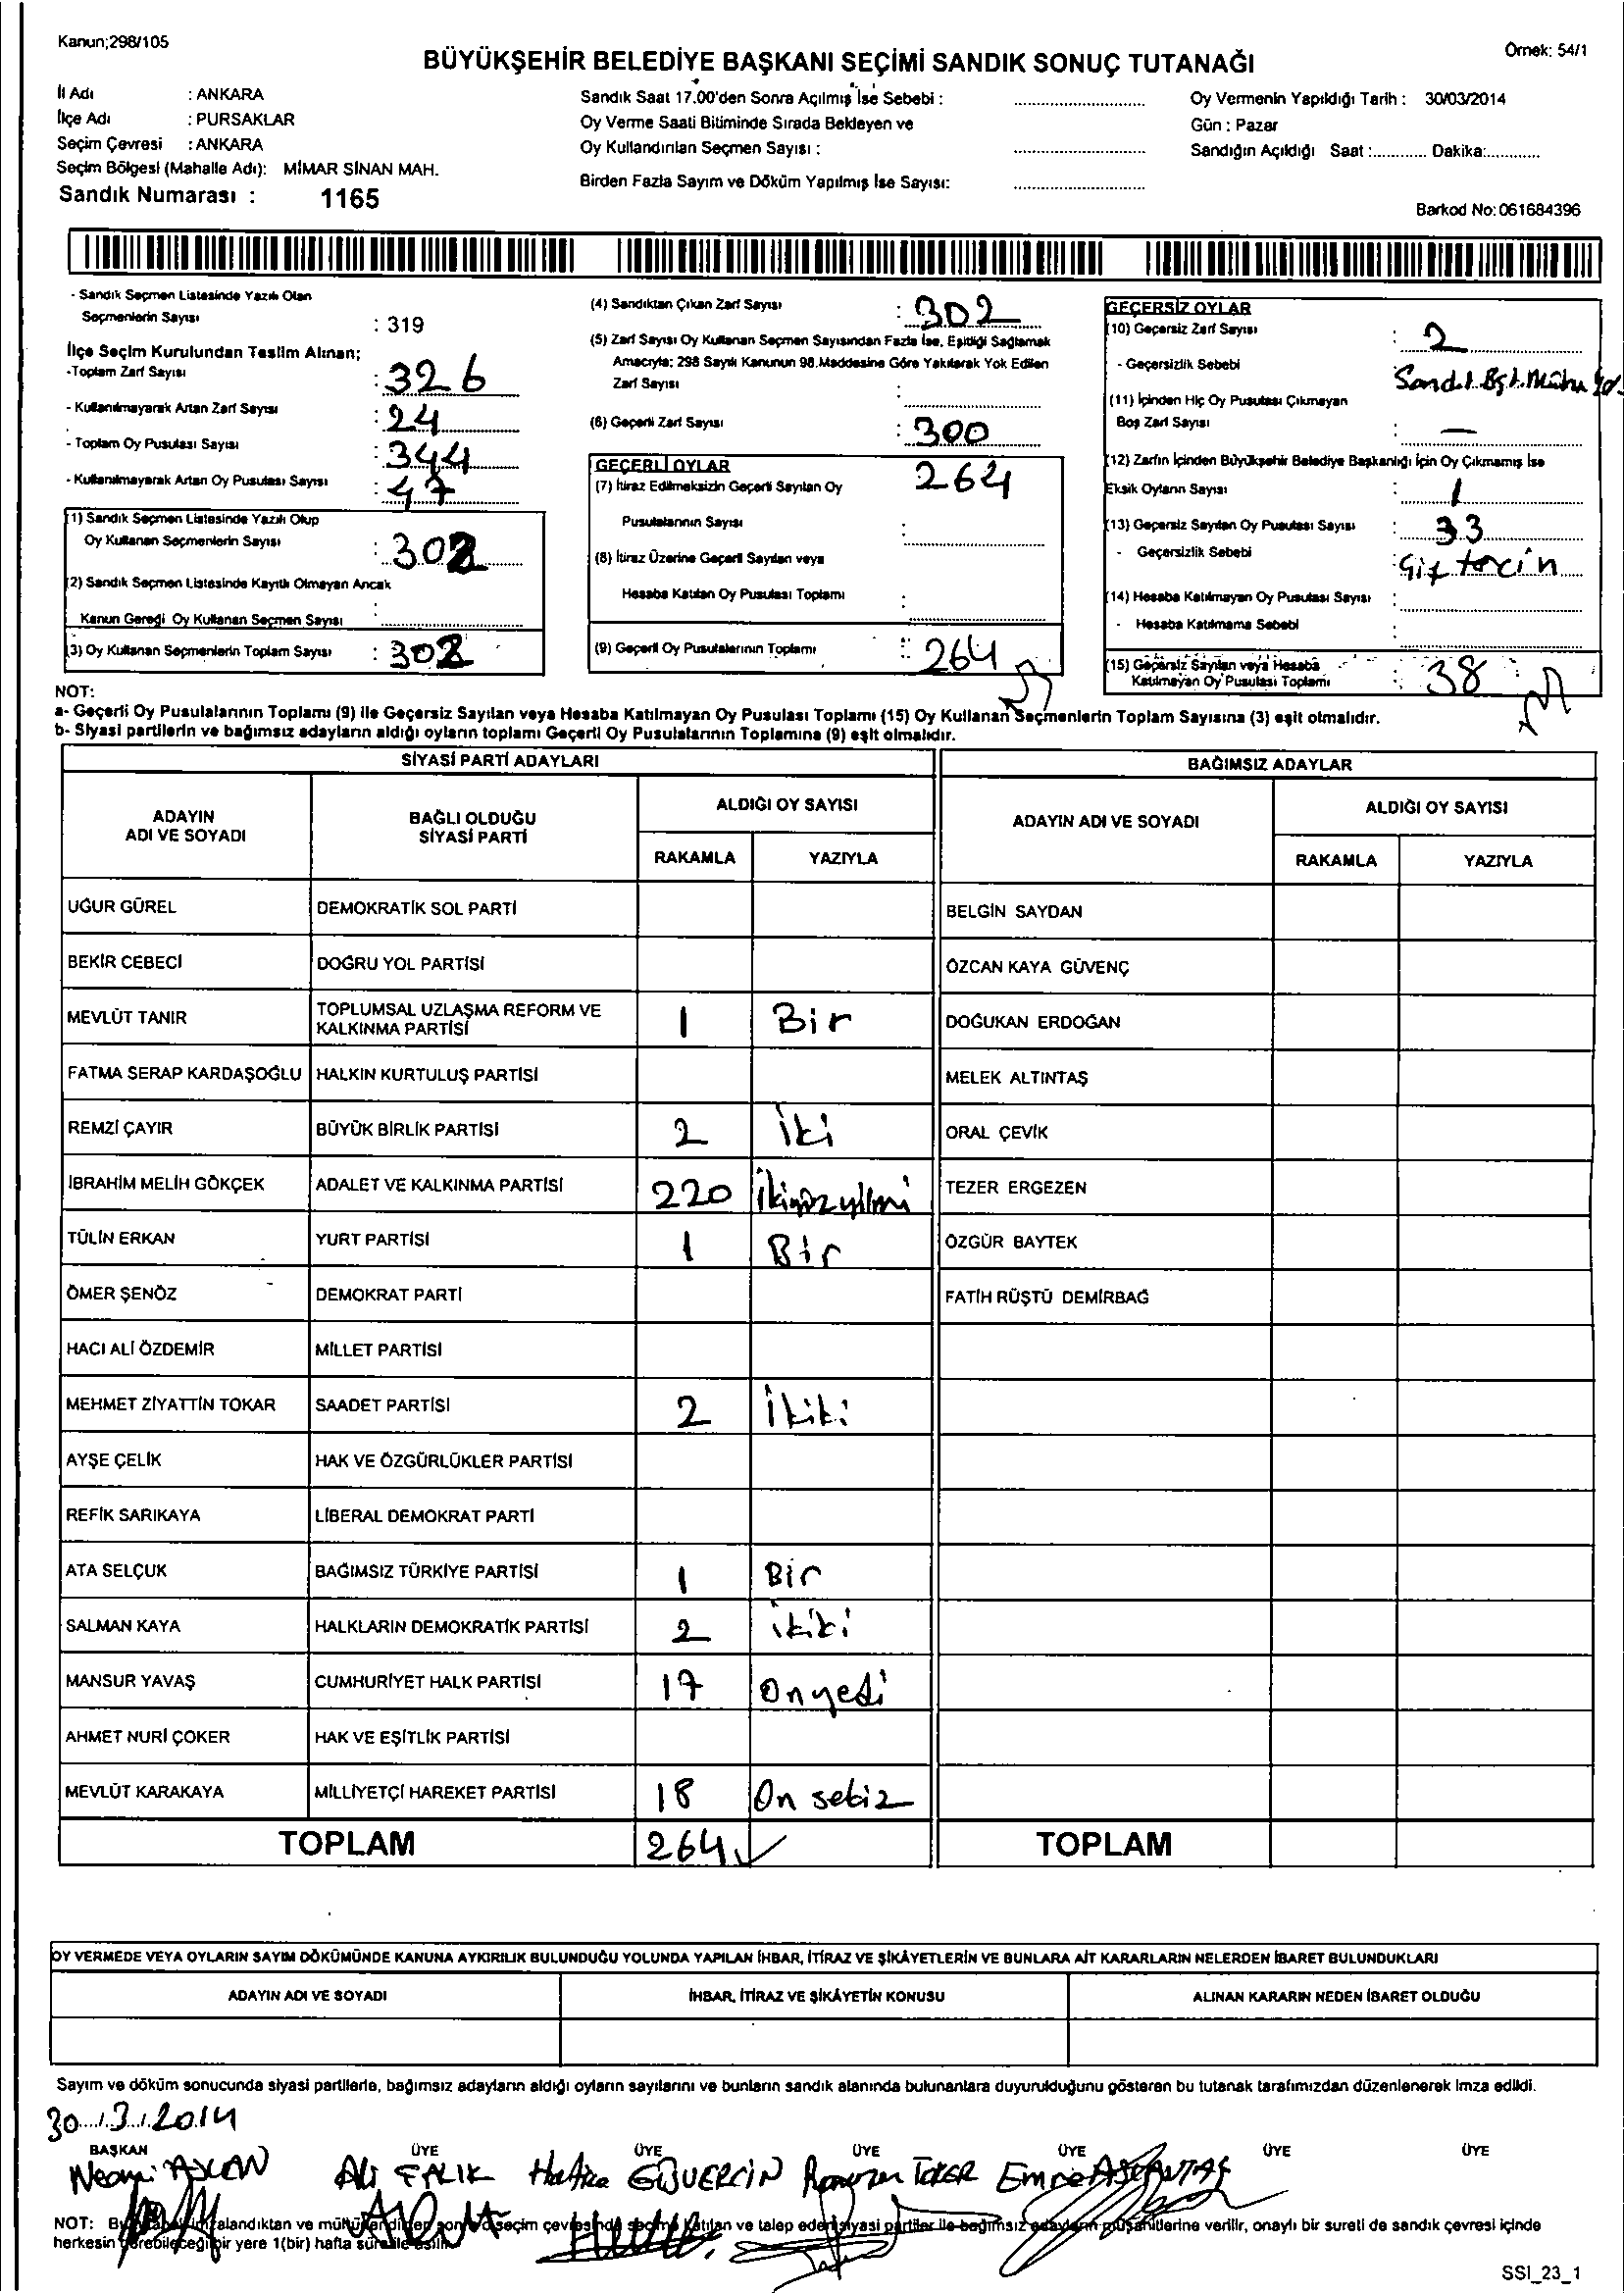 Kanun;298/105
Örnek: 54/1
BÜYÜKŞEHİR BELEDİYE BAŞKANI SEÇİMİ SANDIK SONUÇ TUTANAĞI
İl Adı : ANKARA
İlçe Adı : PURSAKLAR
Seçim Çevresi : ANKARA
Seçim Bölgesi (Mahalle Adı): MİMAR SİNAN MAH.
Sandık Numarası : 1165
Sandık Saat 17.00'den Sonra Açılmış İse Sebebi :
Oy Verme Saati Bitiminde Sırada Bekleyen ve
Oy Kullandırılan Seçmen Sayısı :
Birden Fazla Sayım ve Döküm Yapılmış İse Sayısı:
Oy Vermenin Yapıldığı Tarih : 30/03/2014
Gün : Pazar
Sandığın Açıldığı Saat :............ Dakika:............
Barkod No: 061684396
- Sandık Seçmen Listesinde Yazılı Olan
Seçmenlerin Sayısı : 319
İlçe Seçim Kurulundan Teslim Alınan;
-Toplam Zarf Sayısı : 326
- Kullanılmayarak Artan Zarf Sayısı : 24
- Toplam Oy Pusulası Sayısı : 344
- Kullanılmayarak Artan Oy Pusulası Sayısı : 47
(1) Sandık Seçmen Listesinde Yazılı Olup
Oy Kullanan Seçmenlerin Sayısı : 302
(2) Sandık Seçmen Listesinde Kayıtlı Olmayan Ancak
Kanun Gereği Oy Kullanan Seçmen Sayısı :
(3) Oy Kullanan Seçmenlerin Toplam Sayısı : 302
(4) Sandıktan Çıkan Zarf Sayısı : 302
(5) Zarf Sayısı Oy Kullanan Seçmen Sayısından Fazla İse, Eşitliği Sağlamak
Amacıyla; 298 Sayılı Kanunun 98.Maddesine Göre Yakılarak Yok Edilen
Zarf Sayısı :
(6) Geçerli Zarf Sayısı : 300
GEÇERLİ OYLAR
(7) İtiraz Edilmeksizin Geçerli Sayılan Oy 264
Pusulalarının Sayısı :
(8) İtiraz Üzerine Geçerli Sayılan veya
Hesaba Katılan Oy Pusulası Toplamı :
(9) Geçerli Oy Pusulalarının Toplamı : 264
GEÇERSİZ OYLAR
(10) Geçersiz Zarf Sayısı : 2
- Geçersizlik Sebebi
(11) İçinden Hiç Oy Pusulası Çıkmayan
Boş Zarf Sayısı : —
(12) Zarfın İçinden Büyükşehir Belediye Başkanlığı İçin Oy Çıkmamış İse
Eksik Oyların Sayısı : 1
(13) Geçersiz Sayılan Oy Pusulası Sayısı : 33
- Geçersizlik Sebebi
(14) Hesaba Katılmayan Oy Pusulası Sayısı :
- Hesaba Katılmama Sebebi :
(15) Geçersiz Sayılan veya Hesaba
Katılmayan Oy Pusulası Toplamı : 38
NOT:
a- Geçerli Oy Pusulalarının Toplamı (9) ile Geçersiz Sayılan veya Hesaba Katılmayan Oy Pusulası Toplamı (15) Oy Kullanan Seçmenlerin Toplam Sayısına (3) eşit olmalıdır.
b- Siyasi partilerin ve bağımsız adayların aldığı oyların toplamı Geçerli Oy Pusulalarının Toplamına (9) eşit olmalıdır.
SİYASİ PARTİ ADAYLARI
BAĞIMSIZ ADAYLAR
ADAYIN
ADI VE SOYADI
BAĞLI OLDUĞU
SİYASİ PARTİ
ALDIĞI OY SAYISI
RAKAMLA YAZIYLA
ADAYIN ADI VE SOYADI
ALDIĞI OY SAYISI
RAKAMLA YAZIYLA
UĞUR GÜREL DEMOKRATİK SOL PARTİ BELGİN SAYDAN
BEKİR CEBECİ DOĞRU YOL PARTİSİ ÖZCAN KAYA GÜVENÇ
MEVLÜT TANIR TOPLUMSAL UZLAŞMA REFORM VE
KALKINMA PARTİSİ 1 Bir DOĞUKAN ERDOĞAN
FATMA SERAP KARDAŞOĞLU HALKIN KURTULUŞ PARTİSİ MELEK ALTINTAŞ
REMZİ ÇAYIR BÜYÜK BİRLİK PARTİSİ 2 İki ORAL ÇEVİK
İBRAHİM MELİH GÖKÇEK ADALET VE KALKINMA PARTİSİ 220 TEZER ERGEZEN
TÜLİN ERKAN YURT PARTİSİ 1 Bir ÖZGÜR BAYTEK
ÖMER ŞENÖZ DEMOKRAT PARTİ FATİH RÜŞTÜ DEMİRBAĞ
HACI ALİ ÖZDEMİR MİLLET PARTİSİ
MEHMET ZİYATTİN TOKAR SAADET PARTİSİ 2 İkiki
AYŞE ÇELİK HAK VE ÖZGÜRLÜKLER PARTİSİ
REFİK SARIKAYA LİBERAL DEMOKRAT PARTİ
ATA SELÇUK BAĞIMSIZ TÜRKİYE PARTİSİ 1 Bir
SALMAN KAYA HALKLARIN DEMOKRATİK PARTİSİ 2 ikiki
MANSUR YAVAŞ CUMHURİYET HALK PARTİSİ 17 Onyedi
AHMET NURİ ÇOKER HAK VE EŞİTLİK PARTİSİ
MEVLÜT KARAKAYA MİLLİYETÇİ HAREKET PARTİSİ 18 On sekiz
TOPLAM 264 TOPLAM
OY VERMEDE VEYA OYLARIN SAYIM DÖKÜMÜNDE KANUNA AYKIRILIK BULUNDUĞU YOLUNDA YAPILAN İHBAR, İTİRAZ VE ŞİKÂYETLERİN VE BUNLARA AİT KARARLARIN NELERDEN İBARET BULUNDUKLARI
ADAYIN ADI VE SOYADI İHBAR, İTİRAZ VE ŞİKÂYETİN KONUSU ALINAN KARARIN NEDEN İBARET OLDUĞU
Sayım ve döküm sonucunda siyasi partilerle, bağımsız adayların aldığı oyların sayılarını ve bunların sandık alanında bulunanlara duyurulduğunu gösteren bu tutanak tarafımızdan düzenlenerek imza edildi.
30.../.3../.2014
BAŞKAN ÜYE ÜYE ÜYE ÜYE ÜYE ÜYE
Ali FALIK Hatice GÜVERCİN
NOT: alandıktan ve seçim ve talep eden siyasi partiler ile bağımsız adayların müşahitlerine verilir, onaylı bir sureti de sandık çevresi içinde
herkesin bir yere 1(bir) hafta
SSI_23_1